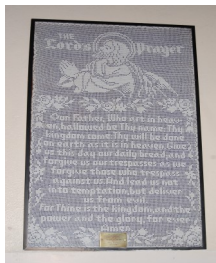 THE
Lord's Prayer
Our Father, Who art in hea-
ven, hallowed be Thy name. Thy
kingdom come, Thy will be done
on earth as it is in heaven. Give
us this day our daily bread, and
forgive us our trespasses as we
forgive those who trespass
against us. And lead us not
into temptation, but deliver
us from evil.
For Thine is the kingdom, and the
power and the glory, for ever.
Amen.